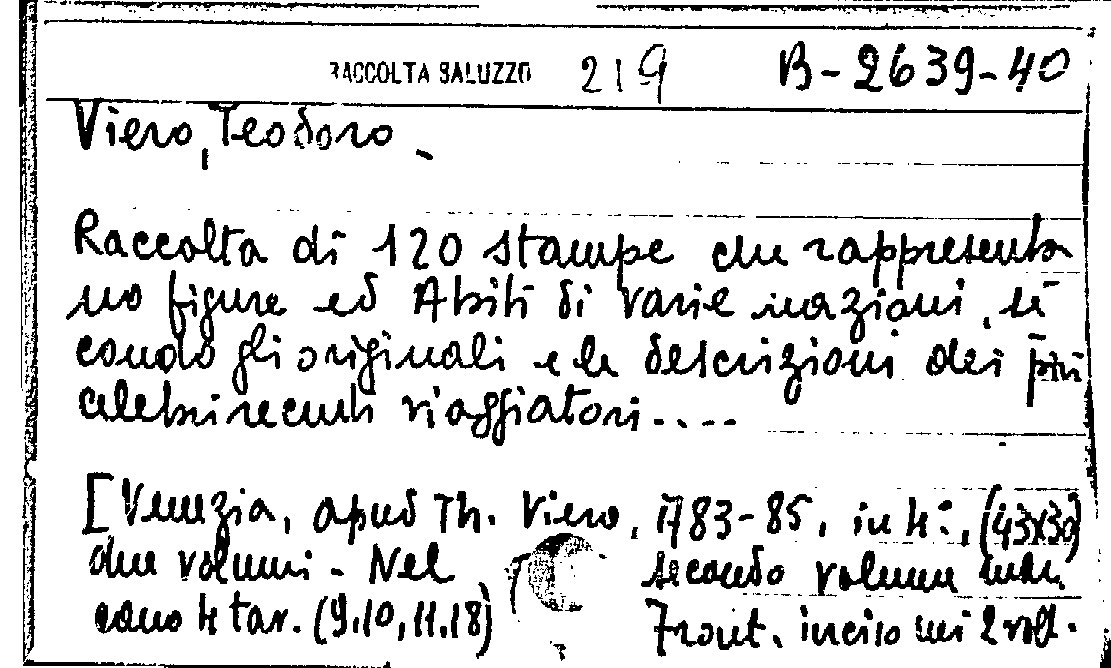 RACCOLTA SALUZZO 219 B-2639-40
Viero, Teodoro -
Raccolta di 120 stampe che rappresenta
no figure ed Abiti di varie nazioni, se
condo gli originali e le descrizioni dei più
celebri recenti viaggiatori....
[Venezia, apud Th. Viero, 1783-85, in 4°, (43x30)
due volumi - Nel secondo volume man
cano 4 tav. (9.10,11.18) Front. inciso nei 2 voll.